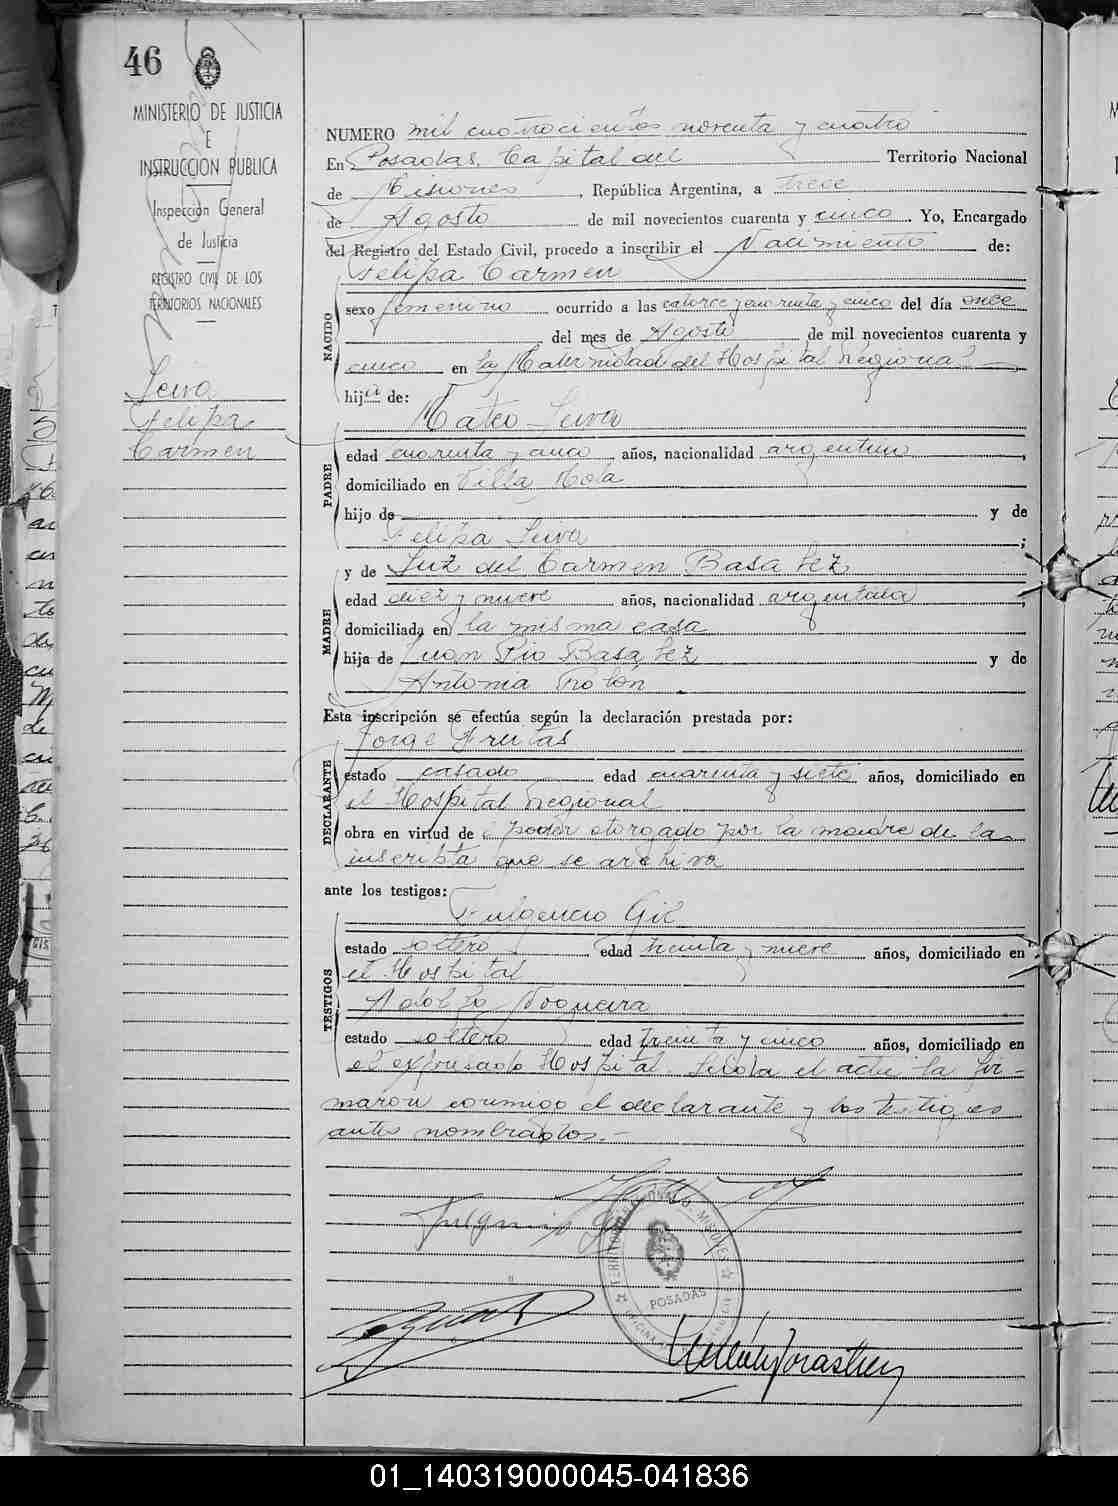 46
MINISTERIO DE JUSTICIA
E
INSTRUCCION PUBLICA
Inspección General
de Justicia
REGISTRO CIVIL DE LOS
TERRITORIOS NACIONALES
Leiva
Felipa
Carmen
NUMERO mil cuatrocientos noventa y cuatro
En Posadas, Capital del Territorio Nacional
de Misiones, República Argentina, a trece
de Agosto de mil novecientos cuarenta y cinco. Yo, Encargado
del Registro del Estado Civil, procedo a inscribir el Nacimiento de:
Felipa Carmen
NACIDO
sexo femenino ocurrido a las catorce y cuarenta y cinco del día once
del mes de Agosto de mil novecientos cuarenta y
cinco en la Maternidad del Hospital Regional
hija de:
Mateo Leiva
PADRE
edad cuarenta y cinco años, nacionalidad argentino,
domiciliado en Villa Mola
hijo de y de
Felipa Leiva;
y de Luz del Carmen Basalez
MADRE
edad diez y nueve años, nacionalidad argentina,
domiciliada en la misma casa
hija de Juan Pio Basalez y de
Antonia Trolon.
Esta inscripción se efectúa según la declaración prestada por:
Jorge Freitas
DECLARANTE
estado casado edad cuarenta y siete años, domiciliado en
el Hospital Regional
obra en virtud de poder otorgado por la madre de la
inscripta que se archiva
ante los testigos:
Fulgencio Gil
TESTIGOS
estado soltero edad treinta y nueve años, domiciliado en
el Hospital
Adolfo Nogueira
estado soltero edad treinta y cinco años, domiciliado en
el expresado Hospital. Leida el acta la fir-
maron conmigo el declarante y los testigos
antes nombrados.-
TERRITORIO NACIONAL MISIONES
POSADAS
01_140319000045-041836